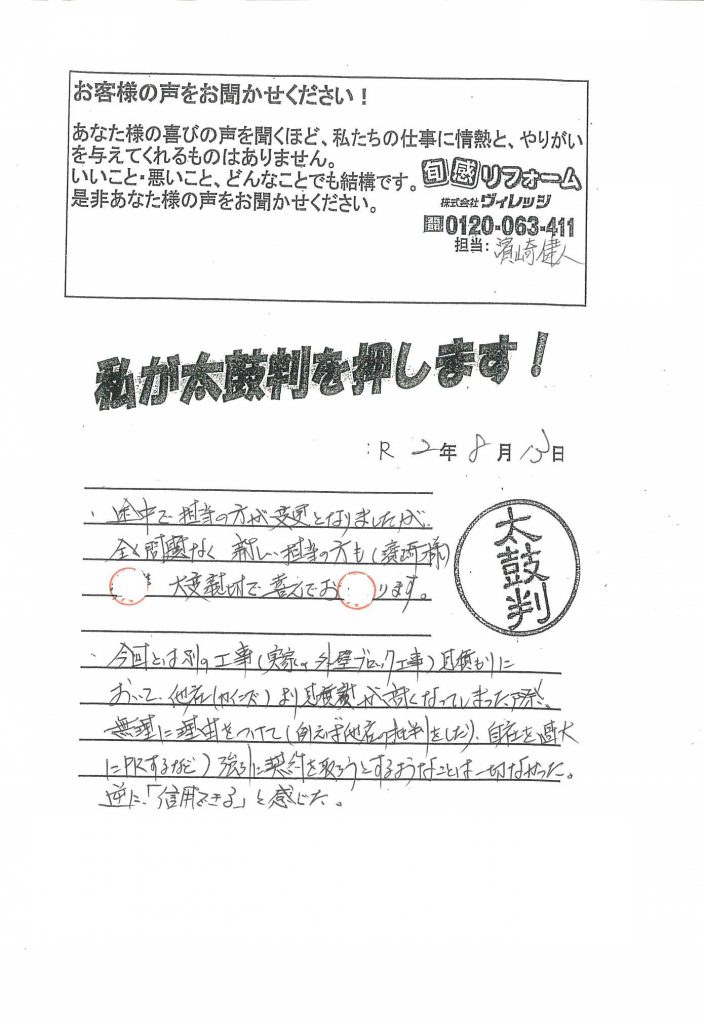 お客様の声をお聞かせください！
あなた様の喜びの声を聞くほど、私たちの仕事に情熱と、やりがい
を与えてくれるものはありません。
いいこと・悪いこと、どんなことでも結構です。
是非あなた様の声をお聞かせください。
旬感リフォーム
株式会社ヴィレッジ
0120-063-411
担当：濱崎健人
私が太鼓判を押します！
：R 2年 8月 13日
・途中で担当の方が変更となりましたが、
全く問題なく新しい担当の方も（ 様）
大変親切で喜んでお ります。
太鼓判
・今回とは別の工事（実家の外壁ブロック工事）見積もりに
おいて、他社（カインズ）より見積額が高くなってしまった際、
無理に理由をつけて（例えば他社の批判をしたり、自社を過大
にPRするなど）強引に契約を取ろうとするようなことは一切なかった。
逆に、「信用できる」と感じた。